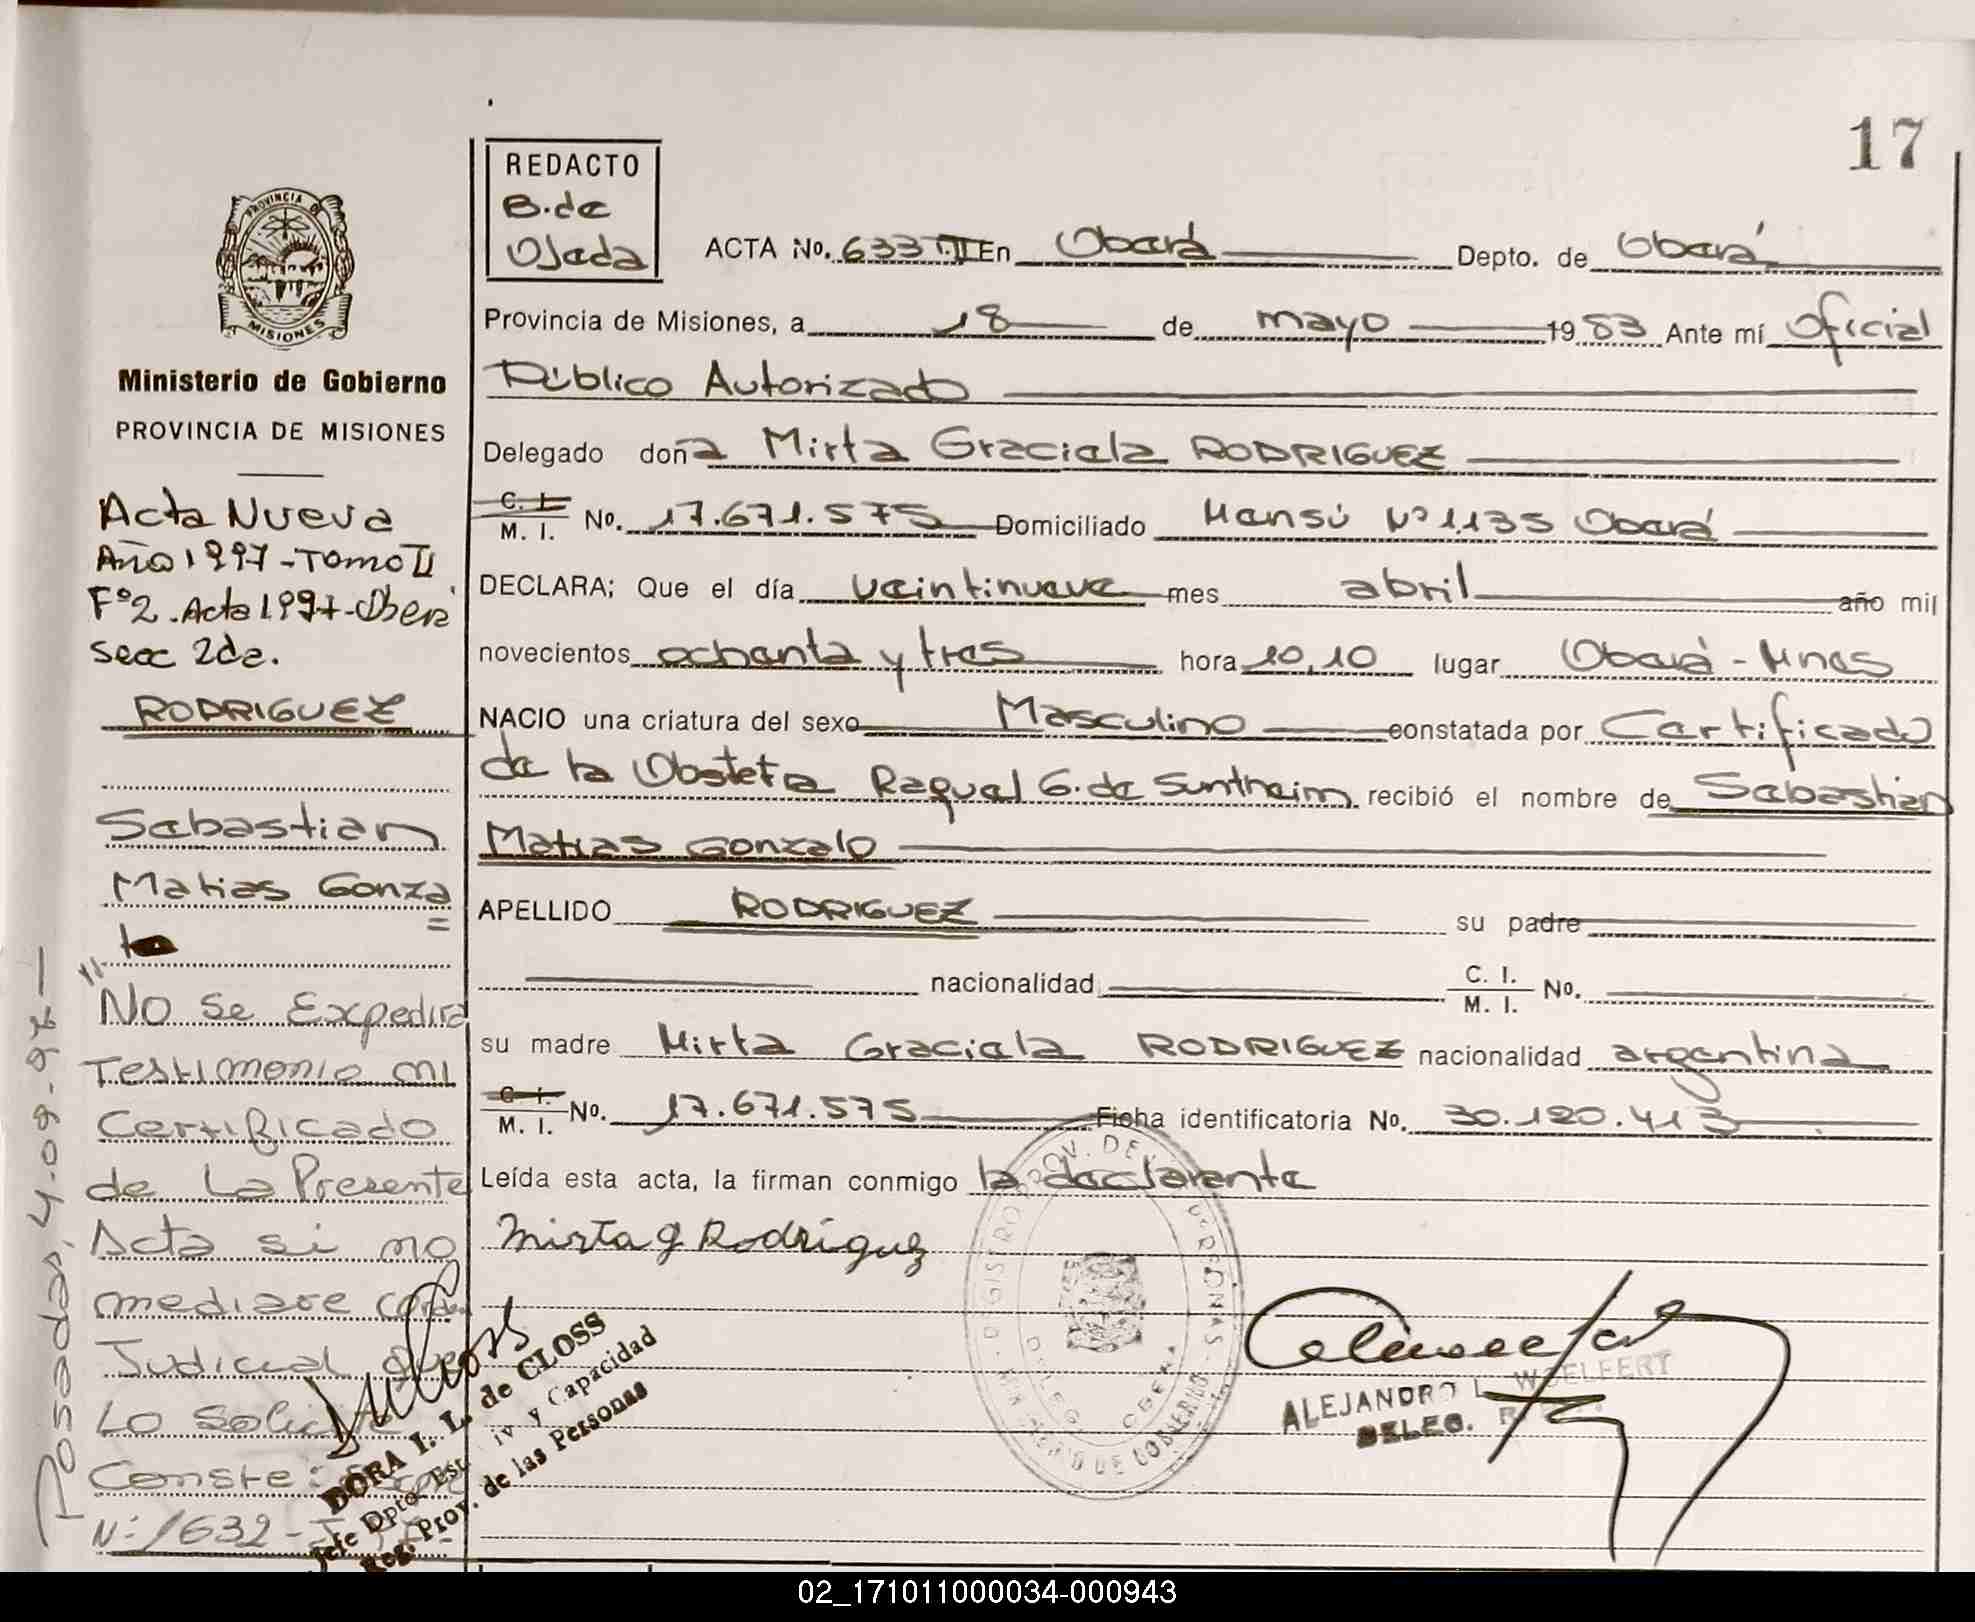 17
REDACTO
B. de
Ojeda
ACTA No. 633 T.II En Oberá Depto. de Oberá
Provincia de Misiones, a 18 de mayo 1983 Ante mí Oficial
Público Autorizado
Delegado doña Mirta Graciela RODRIGUEZ
C. I.
M. I. No. 17.671.575 Domiciliado Mensú Nº 1.135 Oberá
DECLARA; Que el día veintinueve mes abril año mil
novecientos ochenta y tres hora 10,10 lugar Oberá - Mnes
NACIO una criatura del sexo Masculino constatada por Certificado
de la Obstetra Raquel G. de Suntheim recibió el nombre de Sebastian
Matias Gonzalo
APELLIDO RODRIGUEZ su padre
nacionalidad C. I.
M. I. No.
su madre Mirta Graciela RODRIGUEZ nacionalidad argentina
C. I.
M. I. No. 17.671.575 Ficha identificatoria No. 30.120.413
Leída esta acta, la firman conmigo la declarante
Mirta G Rodríguez
ALEJANDRO L. WOELFERT
DELEG.
PROVINCIA DE
MISIONES
Ministerio de Gobierno
PROVINCIA DE MISIONES
Acta Nueva
Año 1997 - Tomo II
Fº 2. Acta 199 - Oberá
Secc 2da.
RODRIGUEZ
Sebastian
Matias Gonza=
lo
"No Se Expedirá
Testimonio ni
Certificado
de La Presente
Acta si no
mediare
Judicial que
Lo Solicite
Conste:
Nº 1632-
Posadas, 4-09-97-
DORA I. L. de CLOSS
Jefe Dpto. Est. Civ. y Capacidad
Reg. Prov. de las Personas
02_171011000034-000943